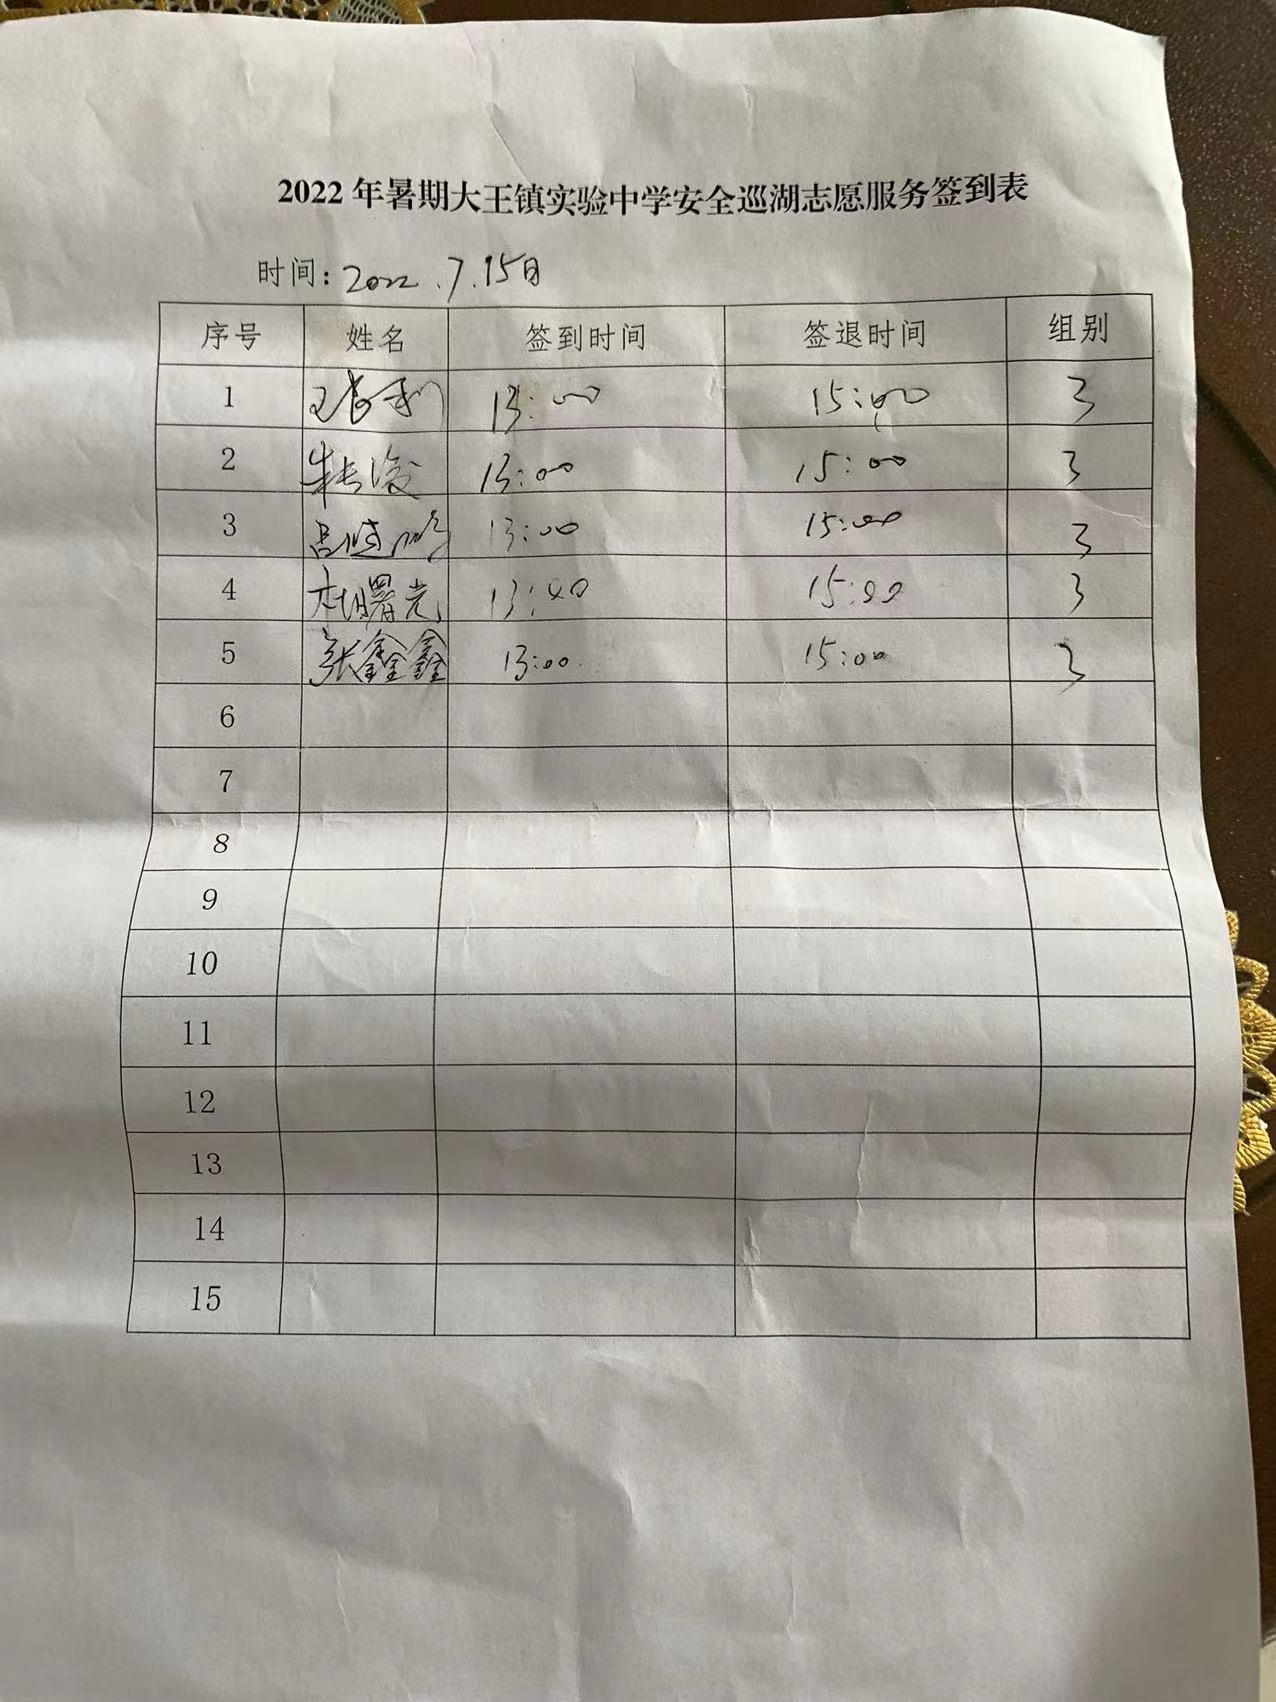 2022年暑期大王镇实验中学安全巡湖志愿服务签到表
时间: 2022.7.15日
序号 姓名 签到时间 签退时间 组别
1 王长利 13:00 15:00 3
2 朱长俊 13:00 15:00 3
3 13:00 15:00 3
4 杜曙光 13:00 15:00 3
5 张鑫鑫 13:00 15:00 3
6
7
8
9
10
11
12
13
14
15